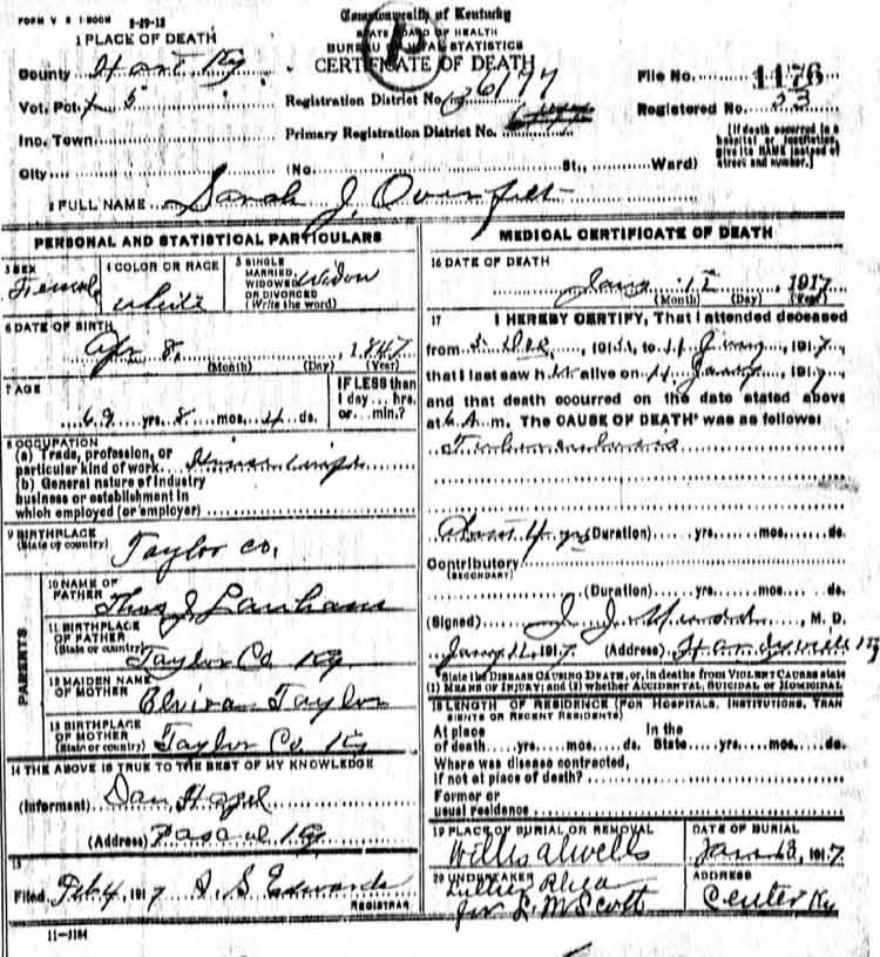 FORM V S 1 300M 3-29-12
Commonwealth of Kentucky
STATE BOARD OF HEALTH
BUREAU OF VITAL STATISTICS
CERTIFICATE OF DEATH
1 PLACE OF DEATH
County Hart Ky
Vot. Pct. 5
Registration District No. 6177
File No. 1176
Registered No. 33
Inc. Town
Primary Registration District No.
City (No. St., Ward)
[If death occurred in a hospital or institution, give its NAME instead of street and number.]
2 FULL NAME Sarah J. Overfelt
PERSONAL AND STATISTICAL PARTICULARS
3 SEX Female
4 COLOR OR RACE White
5 SINGLE MARRIED, WIDOWED OR DIVORCED (Write the word) Widow
6 DATE OF BIRTH
Apr 8, 1847
(Month) (Day) (Year)
7 AGE
69 yrs. 8 mos. 4 ds.
IF LESS than 1 day... hrs. or... min.?
8 OCCUPATION
(a) Trade, profession, or
particular kind of work Housewife
(b) General nature of industry
business or establishment in
which employed (or employer)
9 BIRTHPLACE
(State or country) Taylor Co,
PARENTS
10 NAME OF FATHER Thos J Lanham
11 BIRTHPLACE OF FATHER (State or country) Taylor Co Ky
12 MAIDEN NAME OF MOTHER Elvira Taylor
13 BIRTHPLACE OF MOTHER (State or country) Taylor Co Ky
14 THE ABOVE IS TRUE TO THE BEST OF MY KNOWLEDGE
(Informant) Dan Hazel
(Address) Ky
15
Filed Feb 4, 1917 S. Edwards
REGISTRAR
11-3184
MEDICAL CERTIFICATE OF DEATH
16 DATE OF DEATH
Jany 12, 1917
(Month) (Day) (Year)
17 I HEREBY CERTIFY, That I attended deceased
from Dec, 191, to 11 Jany, 1917,
that I last saw her alive on 11 Jany, 1917,
and that death occurred on the date stated above
at 6 A. m. The CAUSE OF DEATH* was as follows:
Tuberculosis
About 4 yrs (Duration) yrs. mos. ds.
Contributory
(SECONDARY)
(Duration) yrs. mos. ds.
(Signed) J. J., M. D.
Jany 12, 1917. (Address) Hardyville Ky
*State the DISEASE CAUSING DEATH, or, in deaths from VIOLENT CAUSES state
(1) MEANS OF INJURY; and (2) whether ACCIDENTAL, SUICIDAL or HOMICIDAL
18 LENGTH OF RESIDENCE (FOR HOSPITALS, INSTITUTIONS, TRAN
SIENTS OR RECENT RESIDENTS)
At place of death yrs. mos. ds. In the State yrs. mos. ds.
Where was disease contracted,
if not at place of death?
Former or
usual residence
19 PLACE OF BURIAL OR REMOVAL
Willis
DATE OF BURIAL
Jan 13, 1917
20 UNDERTAKER
Luther Rhea
for L. M Scott
ADDRESS
Center Ky